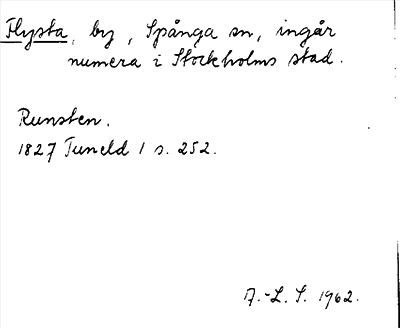 Flysta, by, Spånga sn, ingår
numera i Stockholms stad.
Runsten.
1827 Tuneld 1 s. 252.
A.-L. S. 1962.